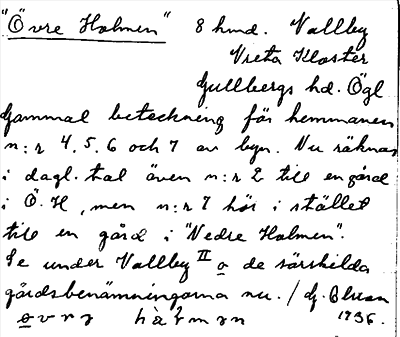 "Övre Holmen" 8 hmd. Vallby
Vreta Kloster
Gullbergs hd. Ögl
Gammal beteckning för hemmanen
n:r 4, 5, 6 och 7 av byn. Nu räknas
i dagl. tal även n:r 2 till en gård
i Ö. H, men n:r 7 hör i stället
till en gård i "Nedre Holmen".
Se under Vallby II o de särskilda
gårdsbenämningarna nu. / G.
1936.